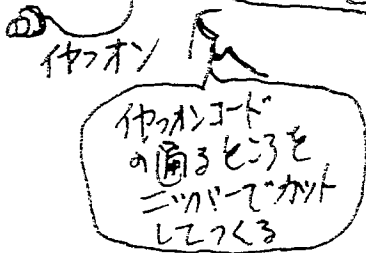 イヤフォン
イヤフォンコード
の通るところを
ニッパーでカット
してつくる